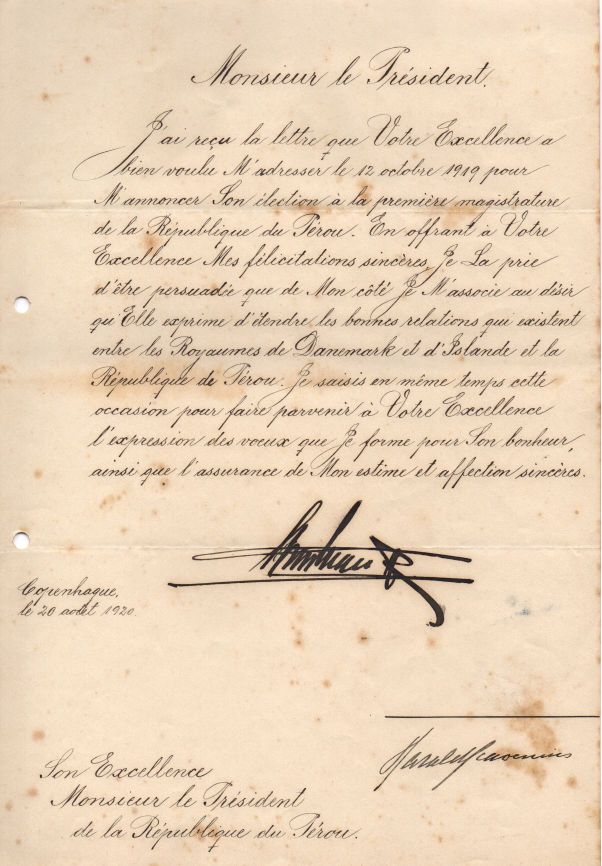 Monsieur le Président.
J'ai reçu la lettre que Votre Excellence a
bien voulu M'adresser le 12 octobre 1919 pour
M'annoncer Son élection à la première magistrature
de la République du Pérou. En offrant à Votre
Excellence Mes félicitations sincères, Je La prie
d'être persuadée que de Mon côté Je M'associe au désir
qu'Elle exprime d'étendre les bonnes relations qui existent
entre les Royaumes de Danemark et d'Islande et la
République de Pérou. Je saisis en même temps cette
occasion pour faire parvenir à Votre Excellence
l'expression des voeux que Je forme pour Son bonheur,
ainsi que l'assurance de Mon estime et affection sincères.
Christian R
Copenhague,
le 20 août 1920.
Harald Scavenius
Son Excellence
Monsieur le Président
de la République du Pérou.